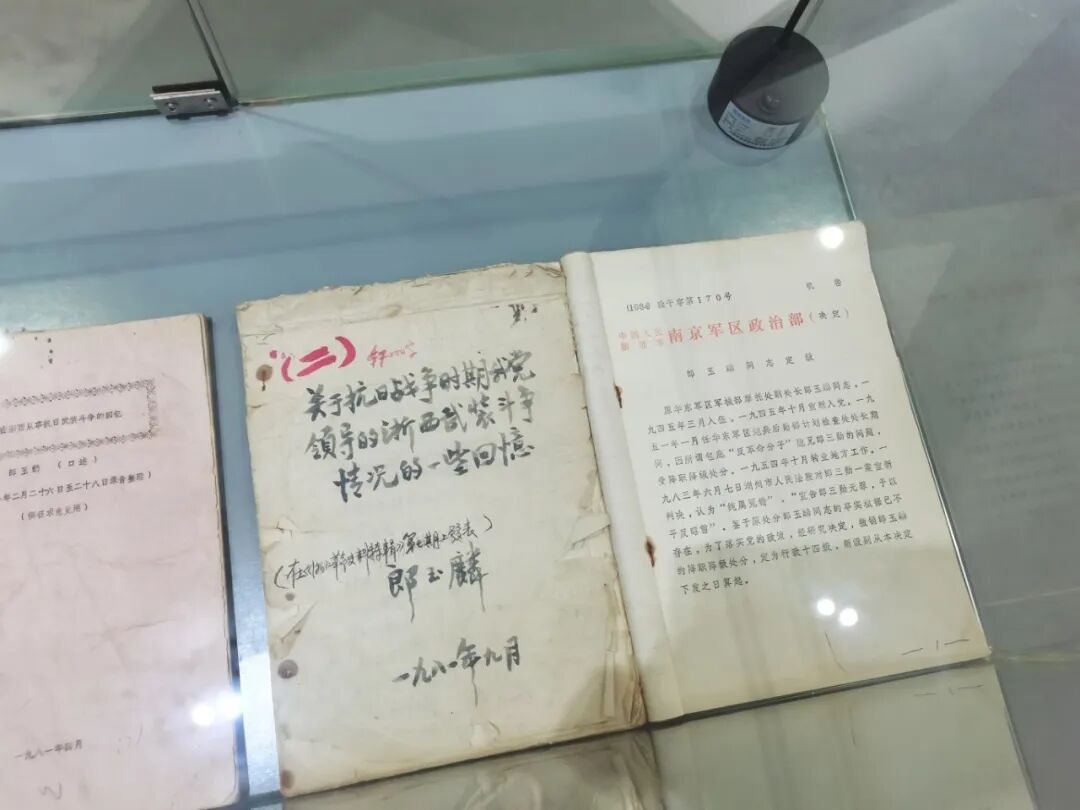 从事抗日武装斗争的回忆
郎玉麟 （口述）
年二月二十六日至二十八日录音整理）
（供征求意见用）
一九八一年四月
（二）
关于抗日战争时期我党
領导的浙西武装斗争
情况的一些回憶
郎玉麟
一九八一年九月
政干字第170号
机密
南京军区政治部（决定）
郎玉麟同志定级
原华东军区军械部摩托处副处长郎玉麟同志，一
九四五年三月入伍，一九四五年十月重新入党。一九
五一年一月任华东军区炮兵后勤部计划检查处处长期
间，因所谓包庇“反革命分子”胞兄郎三勤的问题，
受降职降级处分。一九五四年十月转业地方工作。一
九八三年六月七日湖州市人民法院对郎三勤一案宣布
判决，认为“纯属冤错”，“宣告郎三勤无罪，予以
平反昭雪”。鉴于原处分郎玉麟同志的事实依据已不
存在，为了落实党的政策，经研究决定，撤销郎玉麟
的降职降级处分，定为行政十四级，新级别从本决定
下发之日算起。